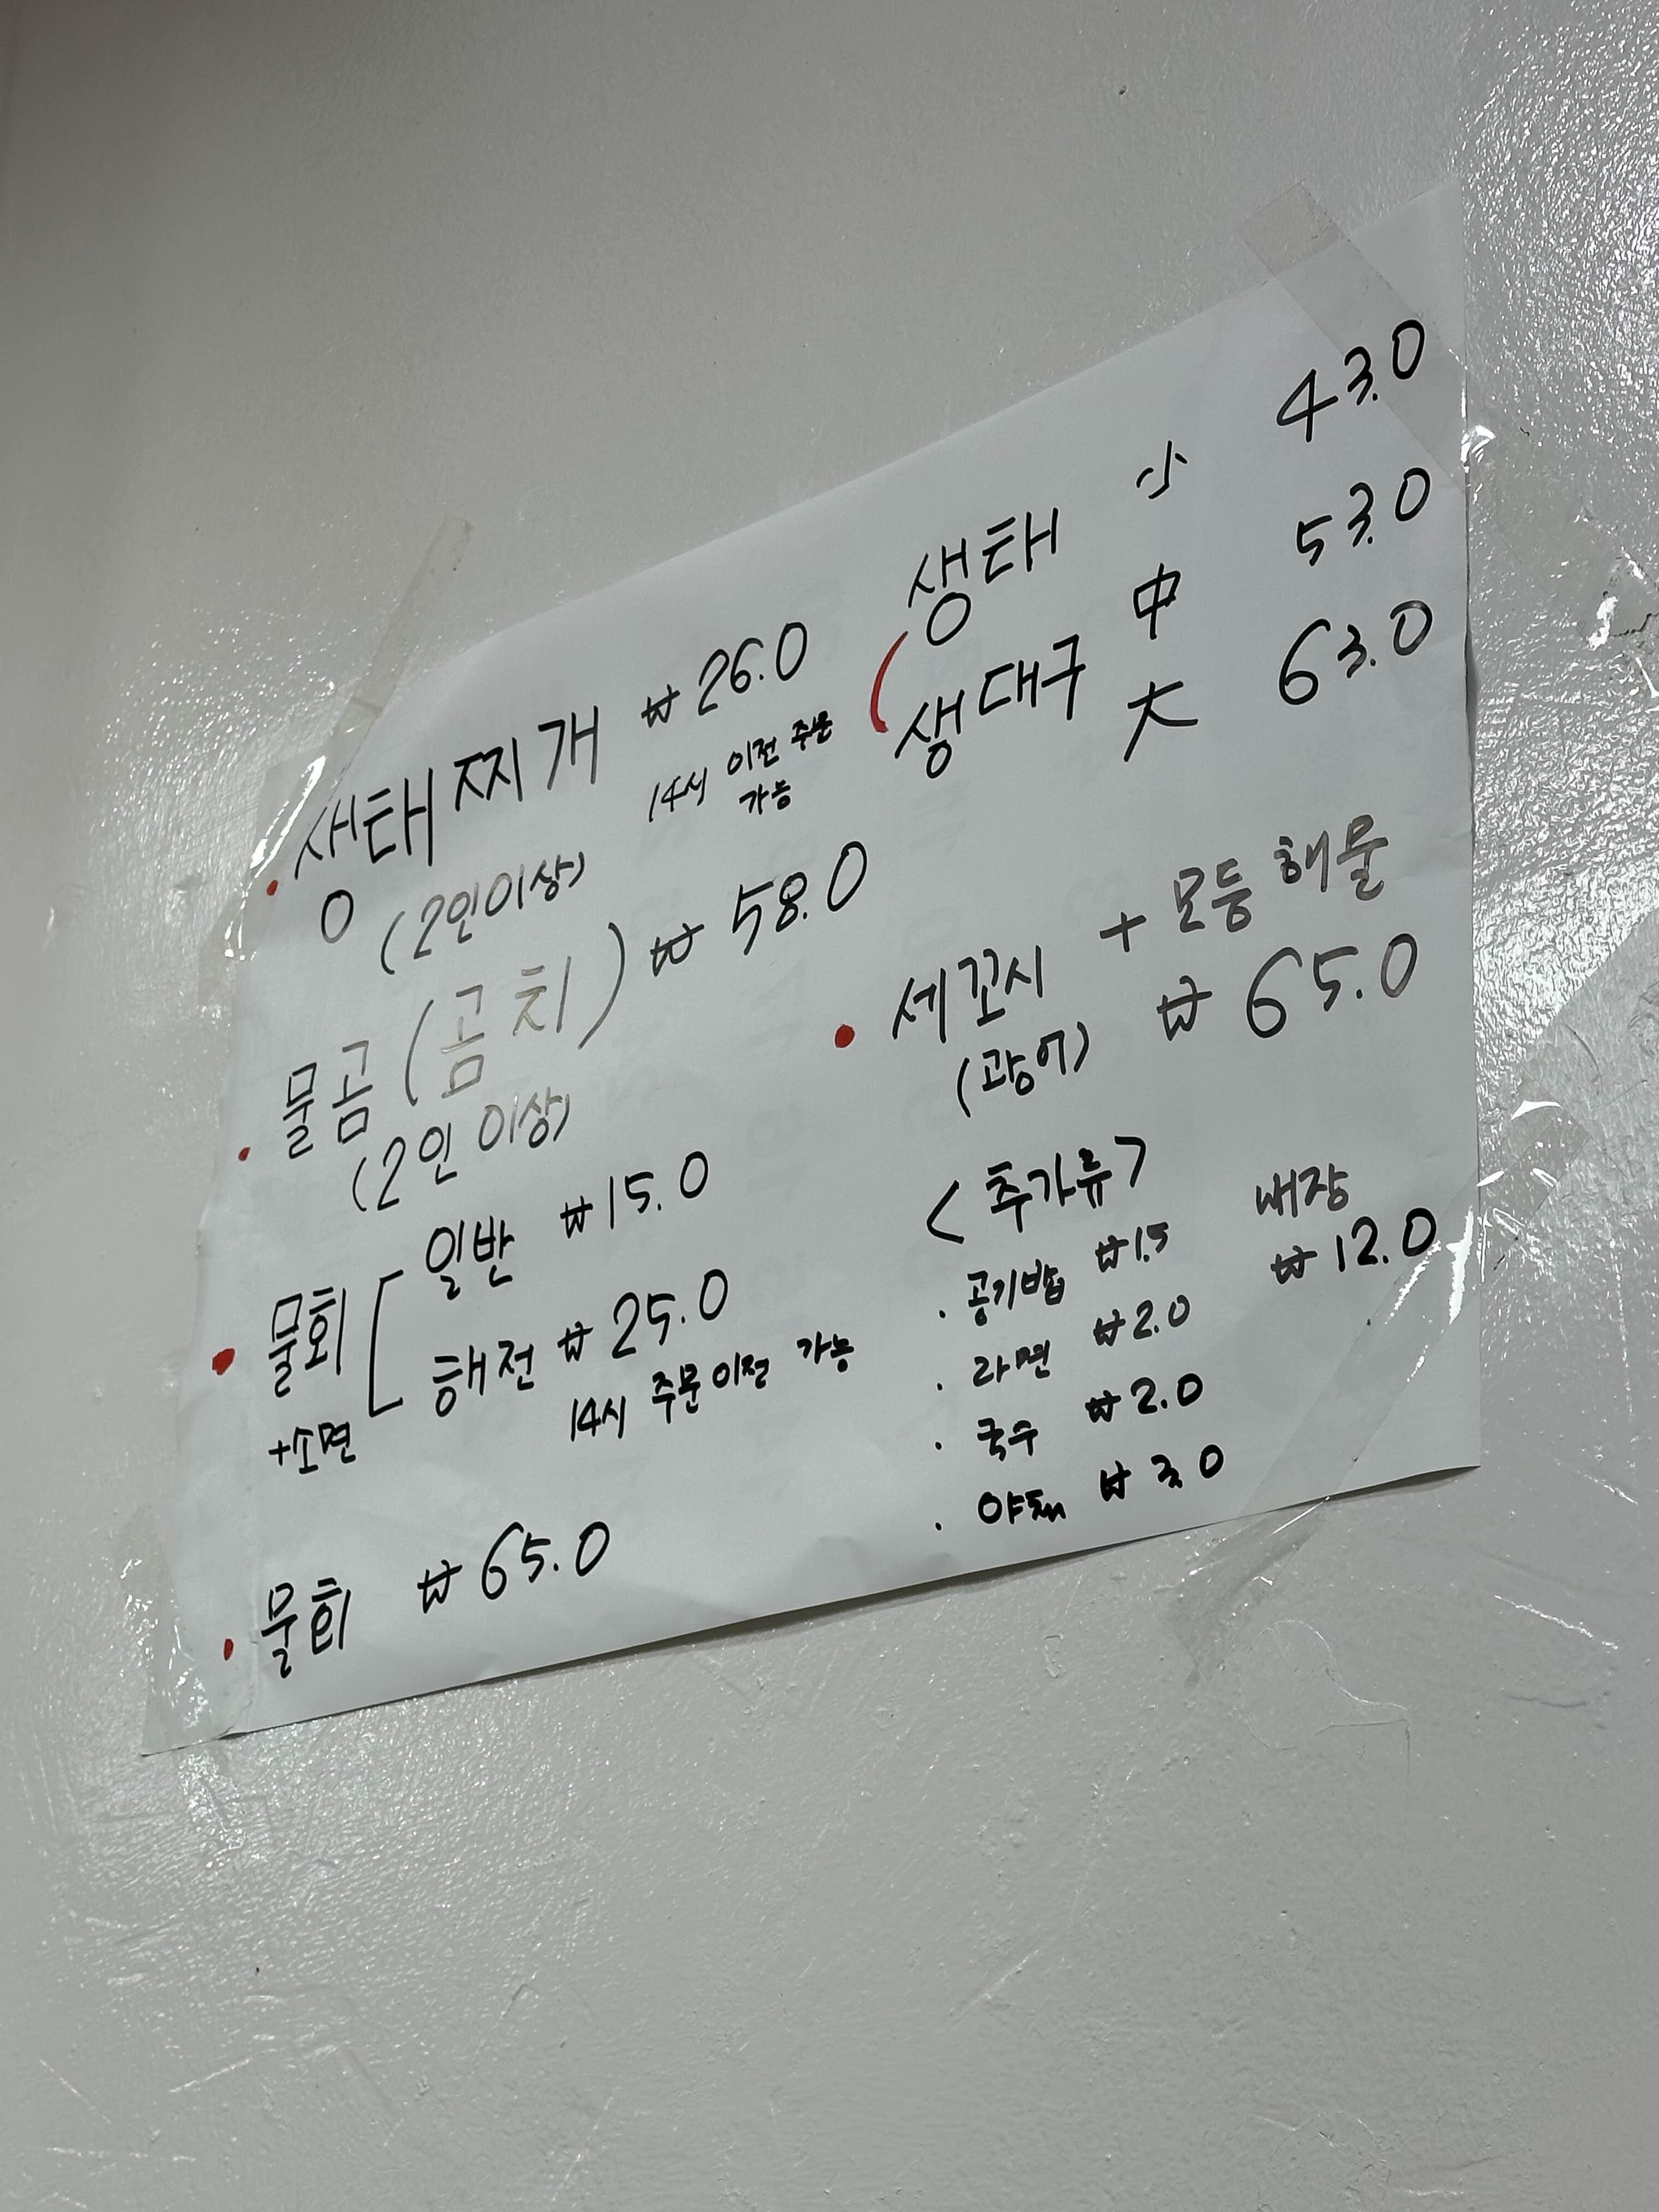 • 생태찌개 ₩ 26.0
(2인이상)
14시 이전 주문
가능
• 물곰 (곰치) ₩ 58.0
(2인 이상)
• 물회 [ 일반 ₩ 15.0
해전 ₩ 25.0
+소면
14시 주문 이전 가능
• 물회 ₩ 65.0
생태 小 43.0
中 53.0
생대구 大 63.0
• 세꼬시 + 모둠 해물
(광어) ₩ 65.0
< 추가류 >
· 공기밥 ₩ 1.5
· 라면 ₩ 2.0
· 국수 ₩ 2.0
· 야채 ₩ 3.0
내장
₩ 12.0